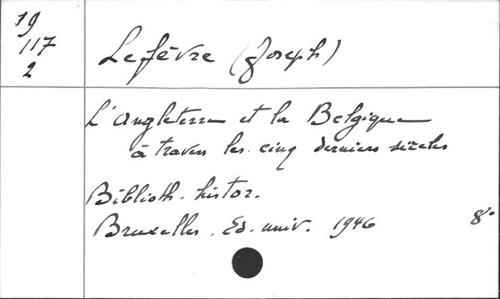 19
117
2
Lefèvre (Joseph)
L'Angleterre et la Belgique
à travers les cinq derniers siècles
Biblioth. histor.
Bruxelles. Ed. univ. 1946 8°